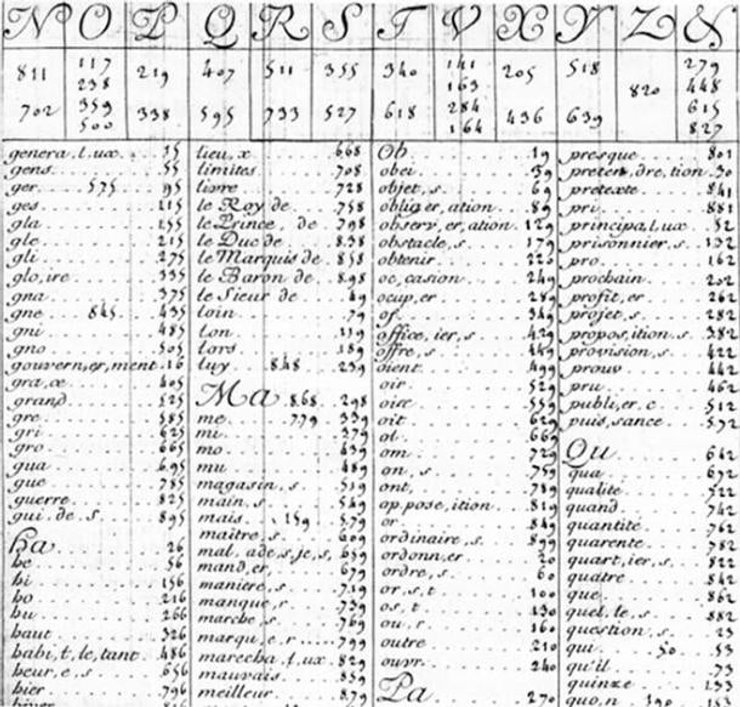 N O P Q R S T V X Y Z &
811 117 238 219 407 511 355 340 141 163 205 518 820 279 448
702 359 500 338 595 733 527 618 284 164 436 639 615 827
genera.l.ux 15
gens 55
ger 575 95
ges 115
gla 155
gle 215
gli 275
glo,ire 335
gna 375
gne 845 435
gni 485
gno 505
gouvern,er,ment 16
gra,ce 405
grand 525
gre 585
gri 625
gro 665
gua 695
gue 785
guerre 825
gui.de.s 895
ha 26
he 56
hi 156
ho 216
hu 266
haut 326
habi,t,le,tant 486
heur,e,s 656
hier 796
lieu.x 668
limites 708
livre 728
le Roy de 758
le Prince, de 798
le Duc de 838
le Marquis de 858
le Baron de 898
le Sieur de 49
loin 79
lon 119
lors 189
luy 848 239
Ma 868 298
me 779 339
mi 279
mo 439
mu 489
magasin,s 519
main,s 549
mais 159 579
maitre,s 609
mal,ade,s,je,s 659
mand,er 679
maniere,s 719
manque,r 739
marche,s 769
marqu,e,r 799
marecha,l,ux 829
mauvais 859
meilleur 879
Ob 19
obei 39
objet,s 69
oblig,er,ation 89
observ,er,ation 129
obstacle,s 179
obtenir 220
oc,casion 249
ocup,er 289
of 349
office,ier,s 429
offre,s 469
oient 499
oir 529
oire 559
oit 629
ol 669
om 729
on,s 759
ont 789
op,pose,ition 819
or 849
ordinaire,s 899
ordonn,er 20
ordre,s 60
or,s,t 100
os,t 130
ou,r 160
outre 210
ouvr 240
Pa 270
presque 801
preten,dre,tion 30
pretexte 841
pri 881
principa,l,ux 52
prisonnier,s 132
pro 162
prochain 202
profit,er 262
projet,s 282
propos,ition,s 382
provision,s 422
prouv 442
pru 462
publi,er,c 512
puis,sance 592
Qu 642
qua 692
qualite 722
quand 742
quantite 762
quarente 782
quart,ier,s 822
quatre 842
que 862
quel,le,s 882
question,s 23
qui 50 53
qu'il 73
quinze 133
quo,n 190 153